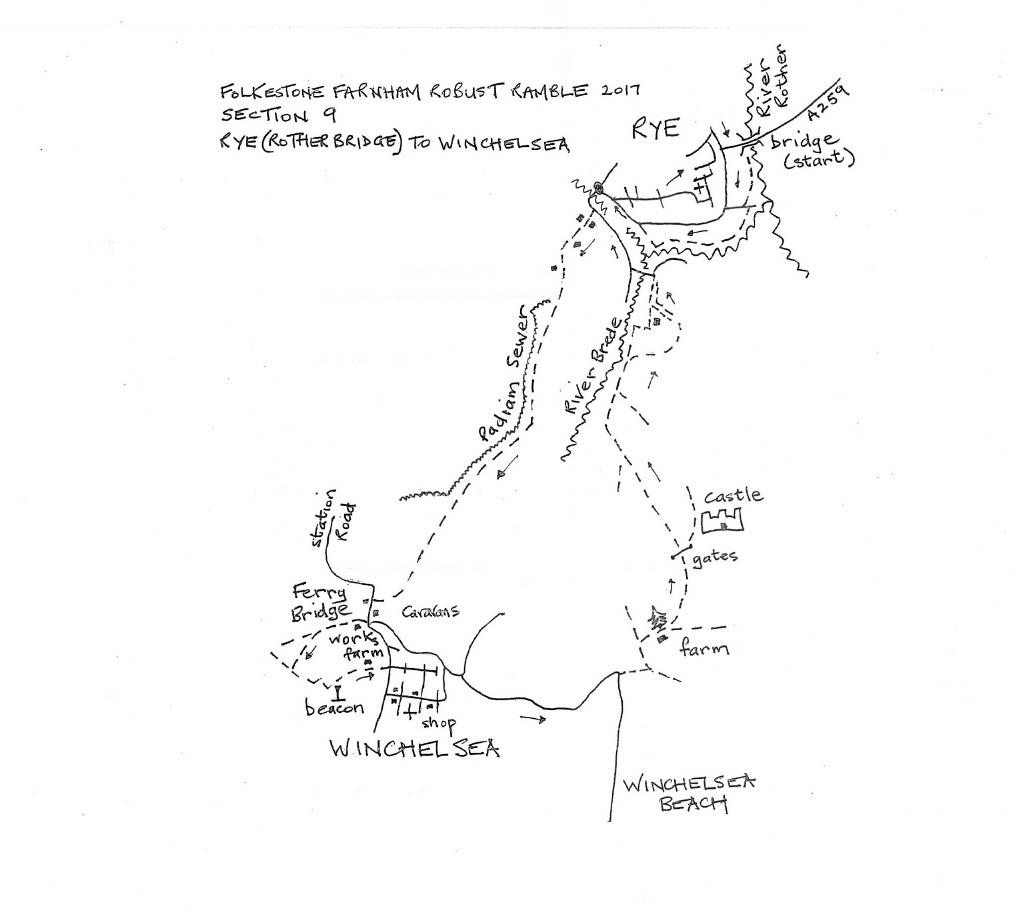 FOLKESTONE FARNHAM ROBUST RAMBLE 2017
SECTION 9
RYE (ROTHER BRIDGE) TO WINCHELSEA
RYE
River
Rother
A259
bridge
(start)
Padiam Sewer
River Brede
Castle
gates
farm
Station
Road
Ferry
Bridge
Caravans
works
farm
beacon
shop
WINCHELSEA
WINCHELSEA
BEACH